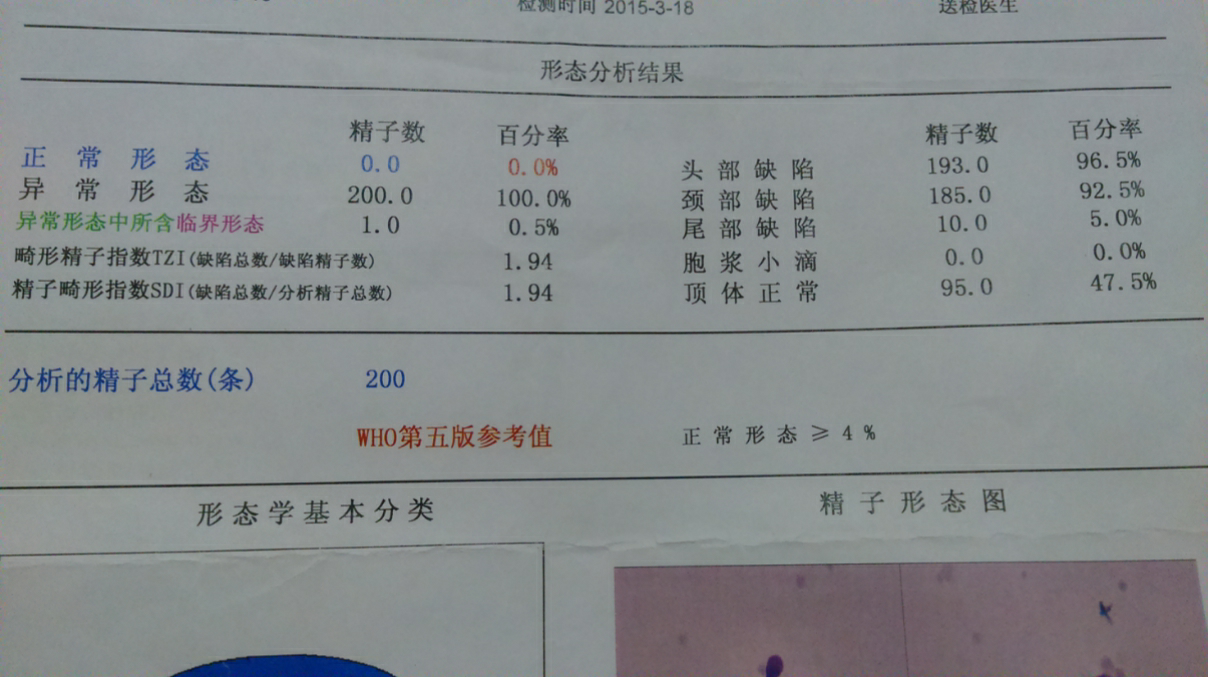 检测时间 2015-3-18 送检医生
形态分析结果
精子数 百分率 精子数 百分率
正常形态 0.0 0.0% 头部缺陷 193.0 96.5%
异常形态 200.0 100.0% 颈部缺陷 185.0 92.5%
异常形态中所含临界形态 1.0 0.5% 尾部缺陷 10.0 5.0%
畸形精子指数TZI(缺陷总数/缺陷精子数) 1.94 胞浆小滴 0.0 0.0%
精子畸形指数SDI(缺陷总数/分析精子总数) 1.94 顶体正常 95.0 47.5%
分析的精子总数(条) 200
WHO第五版参考值 正常形态≥4%
形态学基本分类 精子形态图